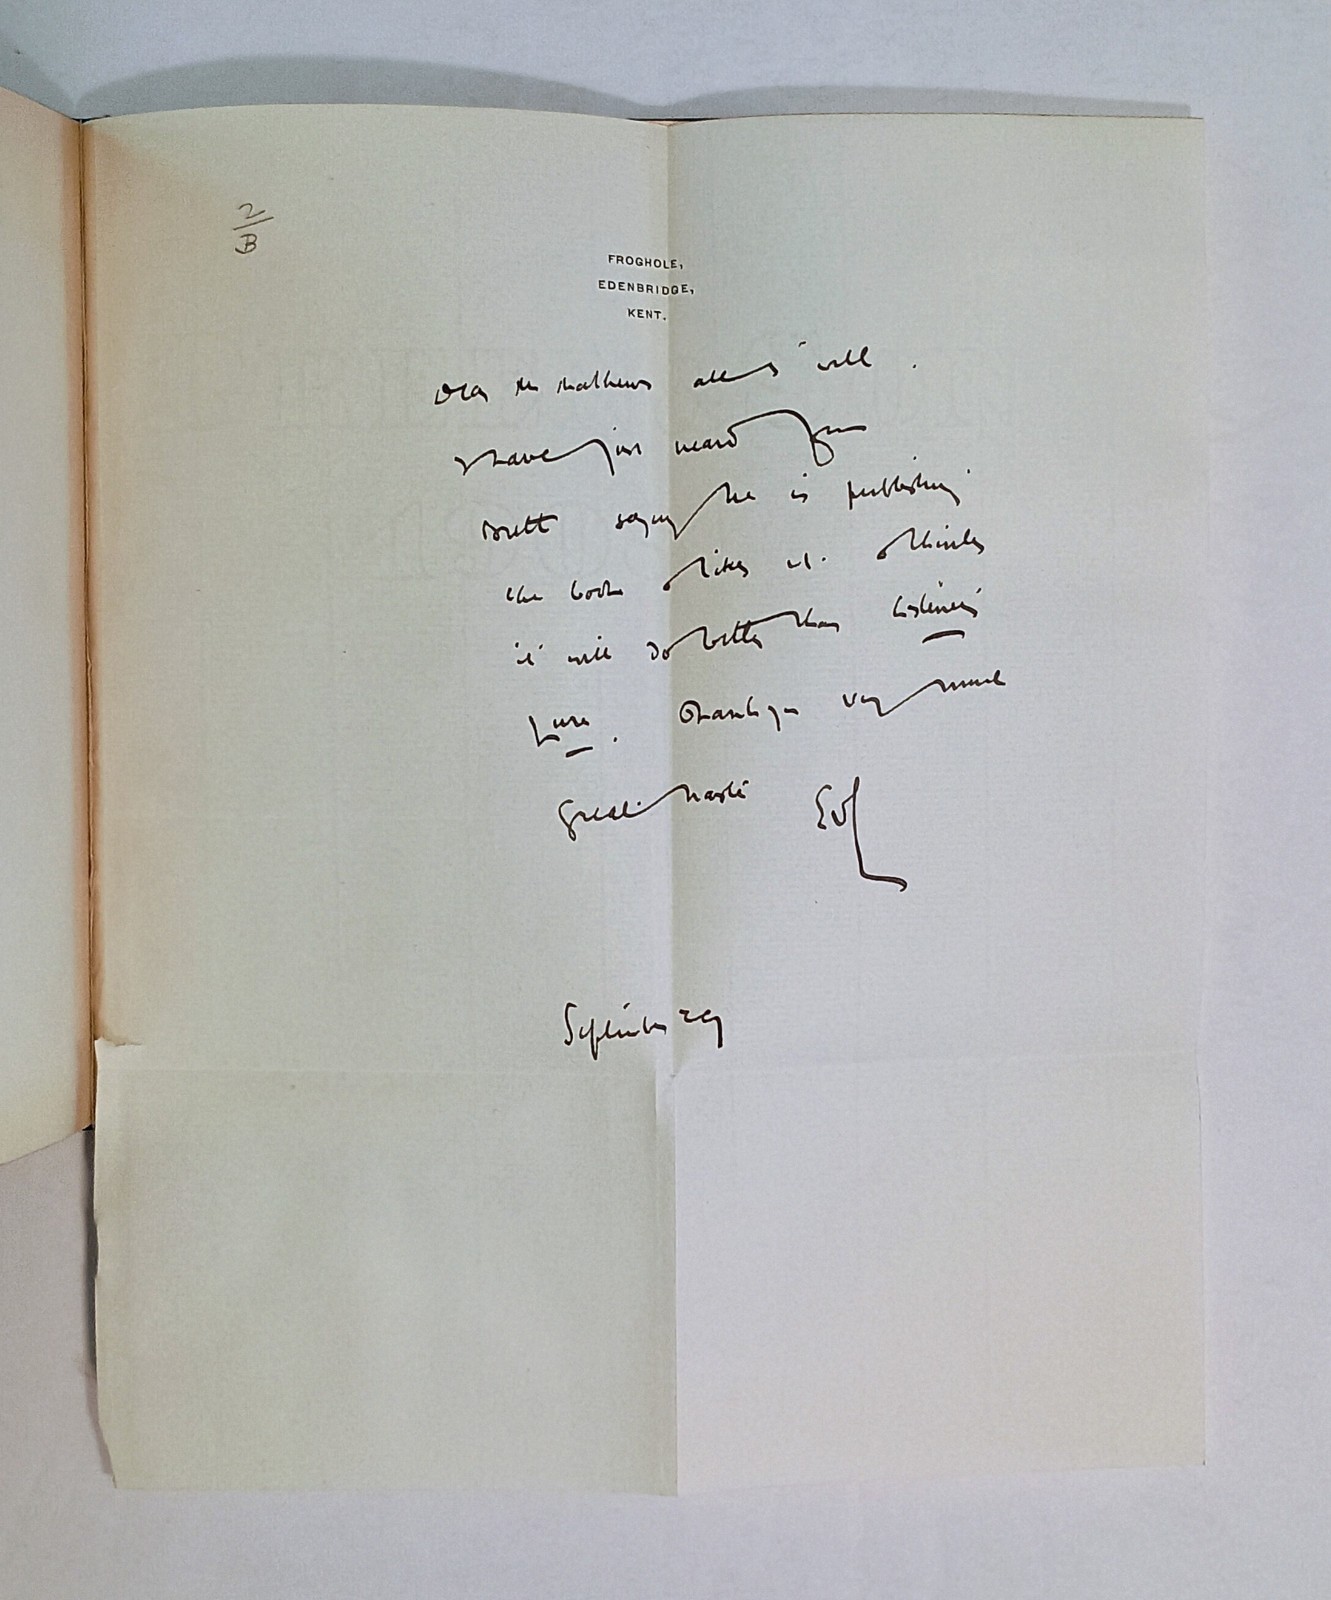 2
B
FROGHOLE,
EDENBRIDGE,
KENT.
Dear Mr Mathews all is well.
I have just heard from
Brett saying he is publishing
the book & likes it. & thinks
it will do better than
Thank you very much
Great haste
September 29